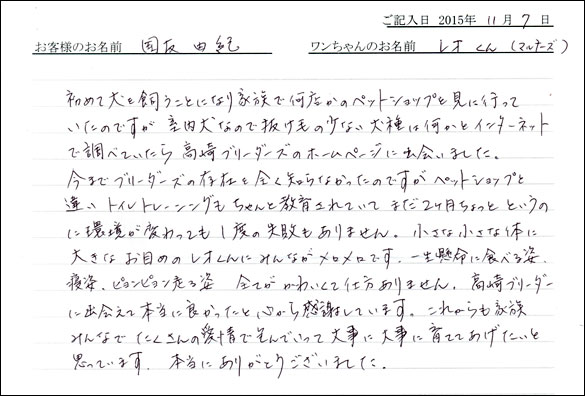 ご記入日 2015年 11月 7日
お客様のお名前 国友 由紀 ワンちゃんのお名前 レオくん(マルチーズ)
初めて犬を飼うことになり家族で何店かのペットショップを見に行って
いたのですが 室内犬なので抜け毛の少ない犬種は何かとインターネット
で調べていたら 高崎ブリーダーズのホームページに出会いました。
今までブリーダーズの存在を全く知らなかったのですがペットショップと
違い トイレトレーニングも ちゃんと教育されていて まだ2ヶ月ちょっと というの
に環境が変わっても 1度の失敗もありません。小さな小さな体に
大きな お目めの レオくんに みんながメロメロです。一生懸命に食べる姿、
寝姿、ピョンピョン走る姿 全てが かわいくて仕方ありません。高崎ブリーダー
に出会えて本当に良かったと 心から感謝しています。これからも家族
みんなで たくさんの愛情で包んでいって 大事に大事に育ててあげたいと
思っています。本当にありがとうございました。